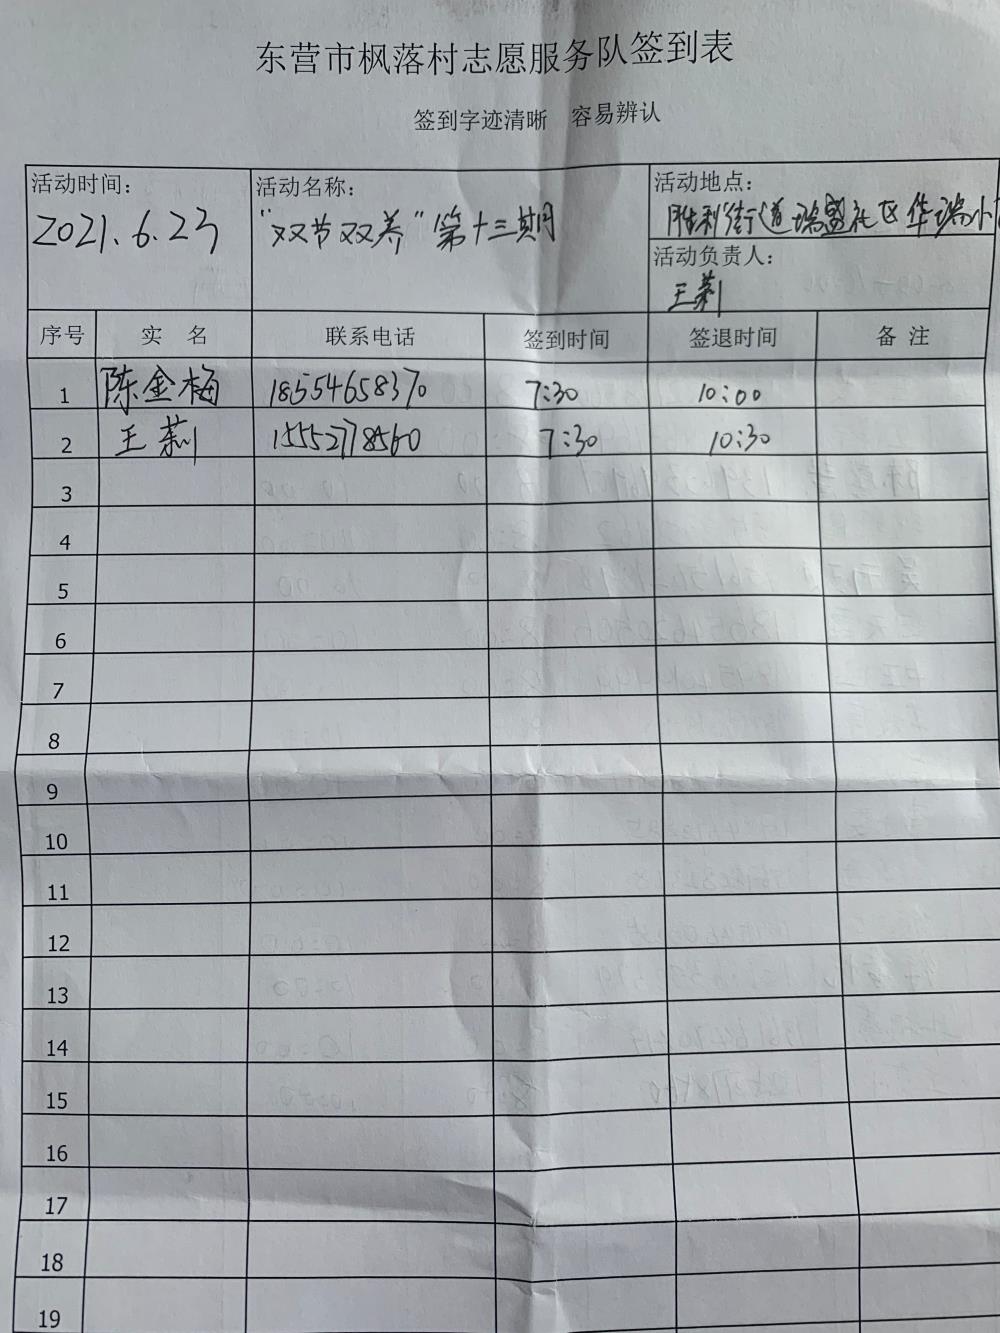 东营市枫落村志愿服务队签到表
签到字迹清晰 容易辨认
活动时间: 活动名称: 活动地点:
2021.6.23 “双节双养”第十三期 胜利街道瑞盛社区华瑞小
活动负责人:
王莉
序号 实 名 联系电话 签到时间 签退时间 备 注
1 陈金梅 18554658370 7:30 10:00
2 王莉 15552778560 7:30 10:30
3
4
5
6
7
8
9
10
11
12
13
14
15
16
17
18
19